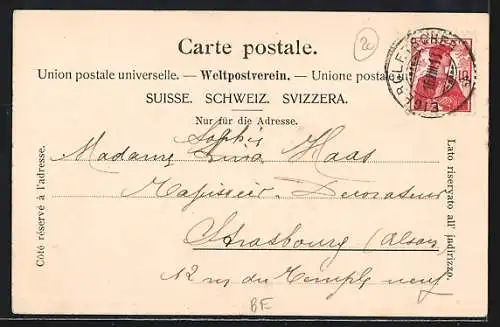 Carte postale.
20
Union postale universelle. — Weltpostverein. — Unione postale
SUISSE. SCHWEIZ. SVIZZERA.
Nur für die Adresse.
Côté réservé à l'adresse.
Lato riservato all' jadirizzo.
Sophie
Madame Haas
Tapissier-Decorateur
Strasbourg (Alsace)
12 rue du Temple neuf
BE